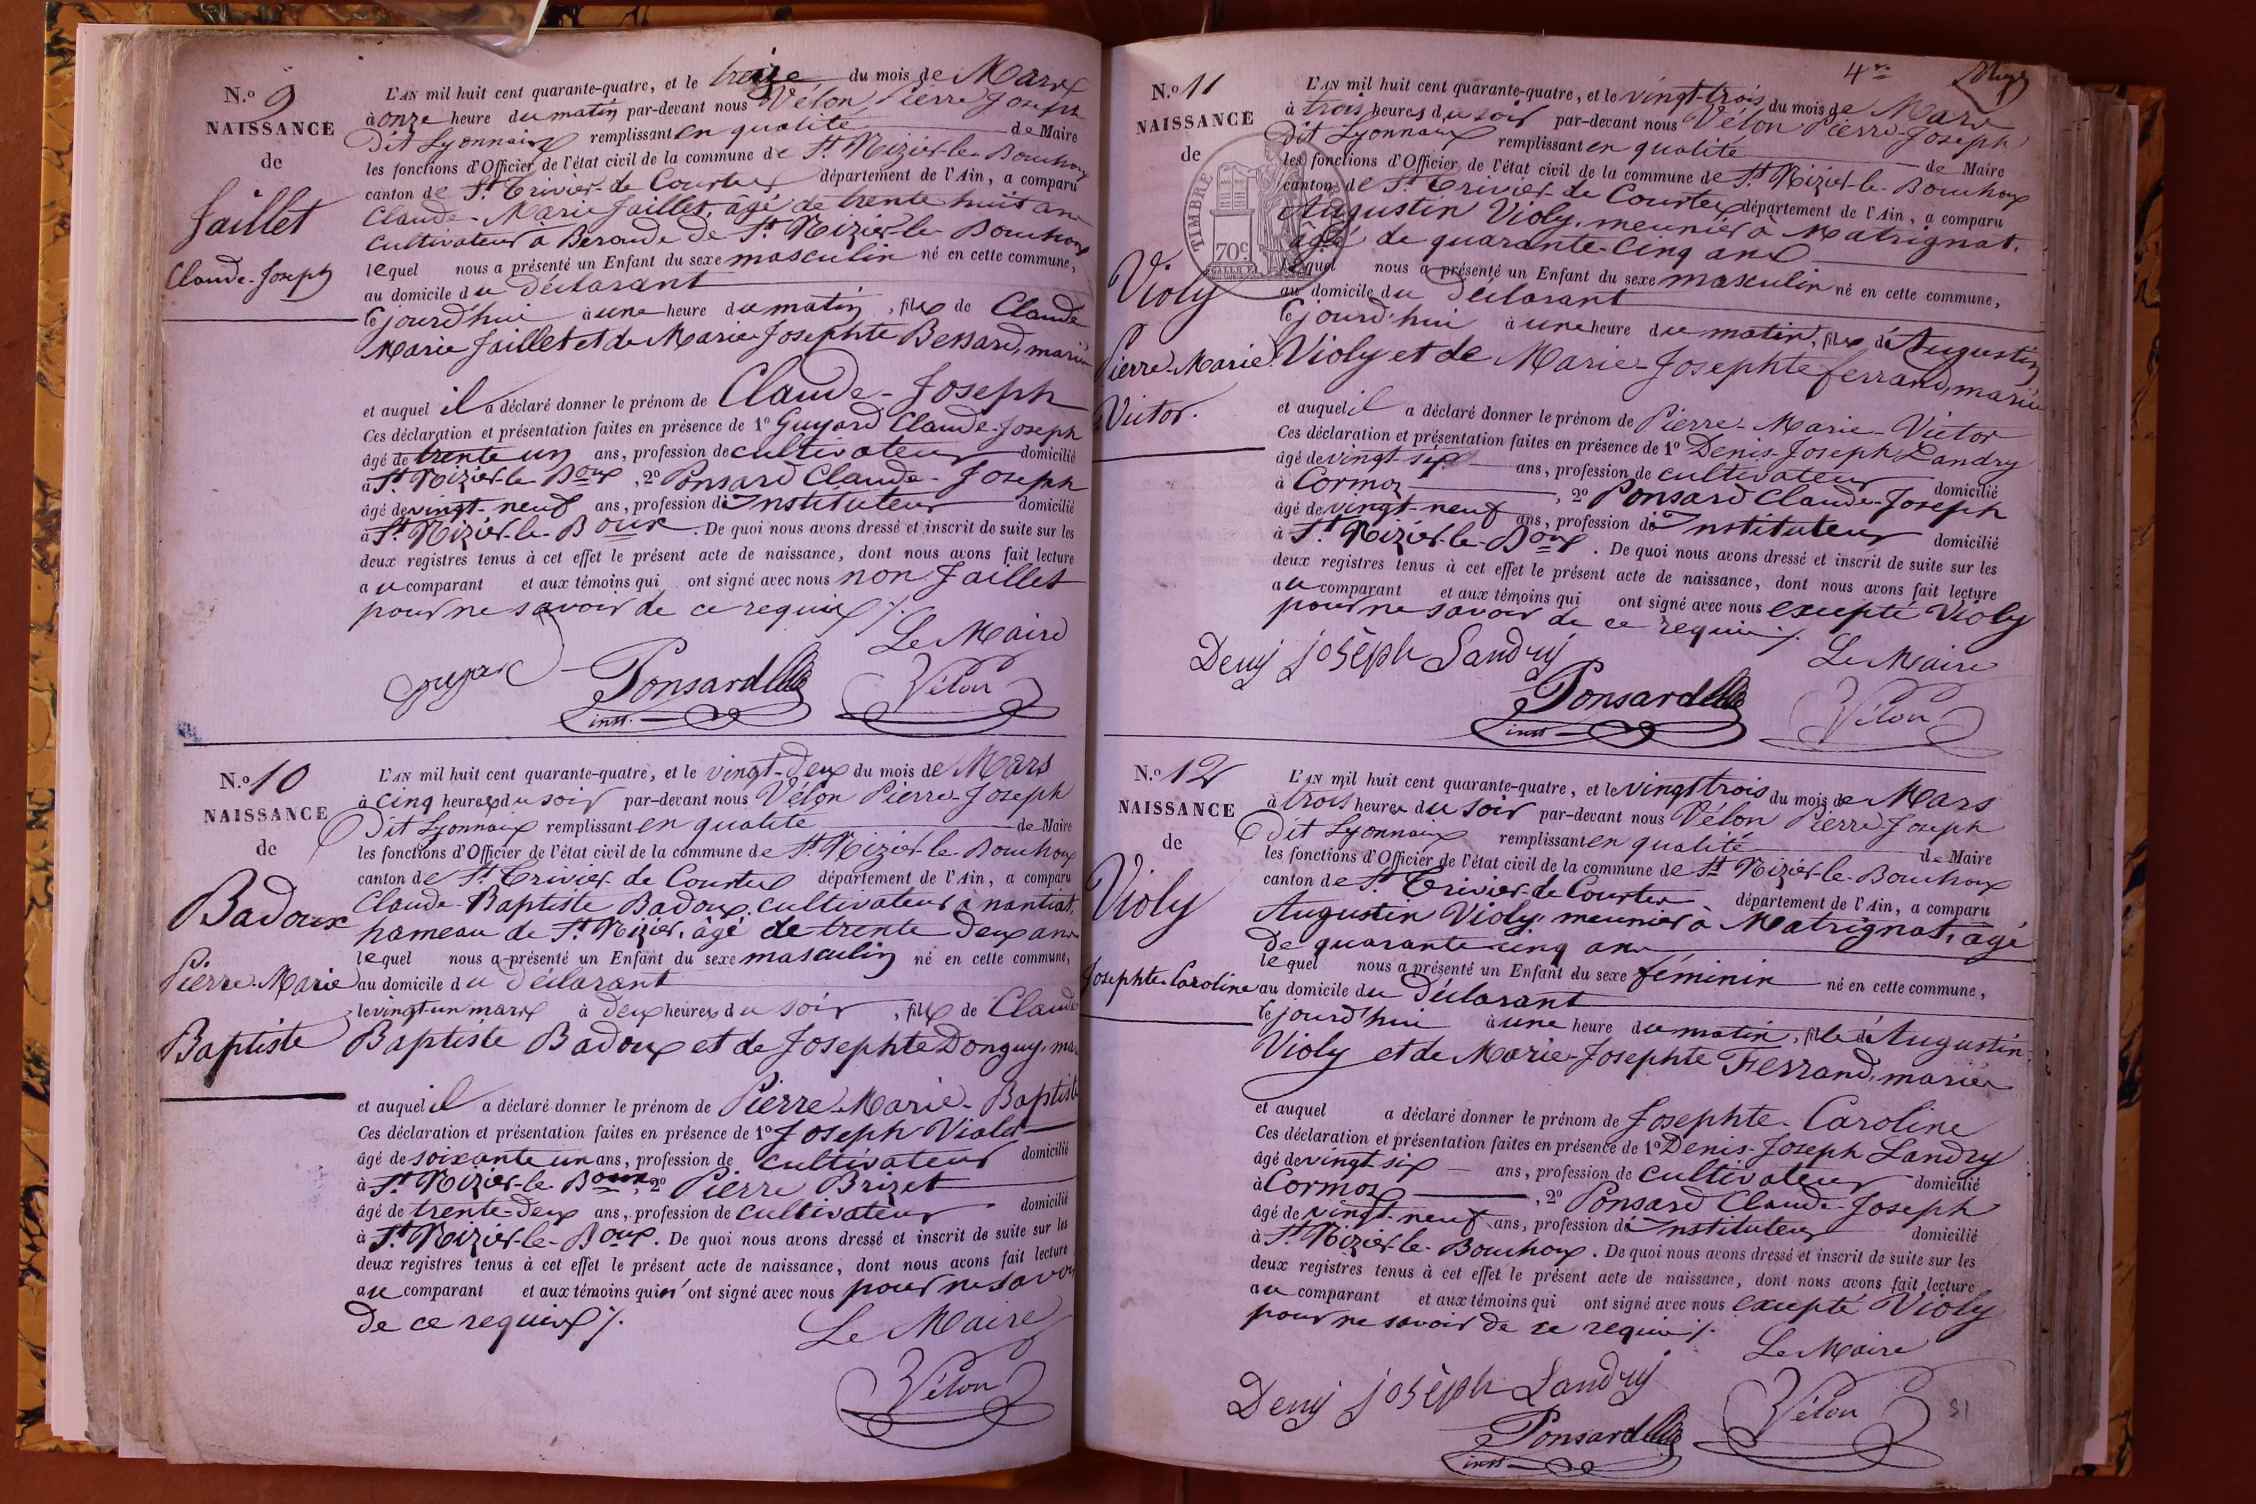 N.º 9
NAISSANCE
de
Jaillet
Claude-Joseph
L'AN mil huit cent quarante-quatre, et le treize du mois de Mars
à onze heure du matin par-devant nous Vélon Pierre Joseph
Dit Lyonnais remplissant en qualité de Maire
les fonctions d'Officier de l'état civil de la commune de St. Nizier-le-Bouchoux
canton de St. Trivier-de Courtes département de l'Ain, a comparu
Claude-Marie Jaillet, âgé de trente huit ans
cultivateur à Beroude de St. Nizier-le-Bouchoux
lequel nous a présenté un Enfant du sexe masculin né en cette commune,
au domicile du déclarant
cejourd'hui à une heure du matin, fils de Claude
Marie Jaillet et de Marie Josephte Bessard, mariés
et auquel il a déclaré donner le prénom de Claude-Joseph
Ces déclaration et présentation faites en présence de 1º Guyard Claude-Joseph
âgé de trente un ans, profession de cultivateur domicilié
à St. Nizier-le-Boux, 2º Ponsard Claude-Joseph
âgé de vingt-neuf ans, profession d'Instituteur domicilié
à St. Nizier-le-Boux. De quoi nous avons dressé et inscrit de suite sur les
deux registres tenus à cet effet le présent acte de naissance, dont nous avons fait lecture
au comparant et aux témoins qui ont signé avec nous non Jaillet
pour ne savoir de ce requis /.
Le Maire
Guyard Ponsard Vélon
inst.
N.º 10
NAISSANCE
de
Badoux
Pierre-Marie
Baptiste
L'AN mil huit cent quarante-quatre, et le vingt-deux du mois de Mars
à cinq heures du soir par-devant nous Vélon Pierre-Joseph
Dit Lyonnais remplissant en qualité de Maire
les fonctions d'Officier de l'état civil de la commune de St. Nizier-le-Bouchoux
canton de St. Trivier-de Courtes département de l'Ain, a comparu
Claude-Baptiste Badoux, cultivateur à nantiat,
hameau de St. Nizier, âgé de trente deux ans
lequel nous a présenté un Enfant du sexe masculin né en cette commune,
au domicile du déclarant
le vingt-un mars à deux heures du soir, fils de Claude
Baptiste Badoux et de Josephte Donguy, ma
et auquel il a déclaré donner le prénom de Pierre-Marie-Baptiste
Ces déclaration et présentation faites en présence de 1º Joseph Violet
âgé de soixante un ans, profession de cultivateur domicilié
à St. Nizier-le-Boux, 2º Pierre Brizet
âgé de trente-deux ans, profession de cultivateur domicilié
à St. Nizier-le-Boux. De quoi nous avons dressé et inscrit de suite sur les
deux registres tenus à cet effet le présent acte de naissance, dont nous avons fait lecture
au comparant et aux témoins qui n'ont signé avec nous pour ne savoir
de ce requis /.
Le Maire
Vélon
4me
N.º 11
NAISSANCE
de
Violy
Pierre-Marie
Victor.
TIMBRE ROYAL
70c.
L'AN mil huit cent quarante-quatre, et le vingt-trois du mois de Mars
à trois heures du soir par-devant nous Vélon Pierre-Joseph
Dit Lyonnais remplissant en qualité de Maire
les fonctions d'Officier de l'état civil de la commune de St. Nizier-le-Bouchoux
canton de St. Trivier de Courtes département de l'Ain, a comparu
Augustin Violy, meunier à Matrignat,
âgé de quarante-cinq ans
lequel nous a présenté un Enfant du sexe masculin né en cette commune,
au domicile du déclarant
cejourd'hui à une heure du matin, fils d'Augustin
Violy et de Marie-Josephte ferrand, mariés
et auquel il a déclaré donner le prénom de Pierre-Marie-Victor
Ces déclaration et présentation faites en présence de 1º Denis-Joseph Landry
âgé de vingt-six ans, profession de cultivateur domicilié
à Cormoz, 2º Ponsard Claude-Joseph
âgé de vingt-neuf ans, profession d'Instituteur domicilié
à St. Nizier-le-Boux. De quoi nous avons dressé et inscrit de suite sur les
deux registres tenus à cet effet le présent acte de naissance, dont nous avons fait lecture
au comparant et aux témoins qui ont signé avec nous excepté Violy
pour ne savoir de ce requis /.
Le Maire
Deny josèph Landry
Ponsard Vélon
inst
N.º 12
NAISSANCE
de
Violy
Josephte-Caroline
L'AN mil huit cent quarante-quatre, et le vingt trois du mois de Mars
à trois heures du soir par-devant nous Vélon Pierre-Joseph
Dit Lyonnais remplissant en qualité de Maire
les fonctions d'Officier de l'état civil de la commune de St. Nizier-le-Bouchoux
canton de St. Trivier-de Courtes département de l'Ain, a comparu
Augustin Violy, meunier à Matrignat, âgé
de quarante cinq ans
lequel nous a présenté un Enfant du sexe féminin né en cette commune,
au domicile du déclarant
cejourd'hui à une heure du matin, fille d'Augustin
Violy et de Marie-Josephte Ferrand, mariés
et auquel a déclaré donner le prénom de Josephte-Caroline
Ces déclaration et présentation faites en présence de 1º Denis-Joseph Landry
âgé de vingt-six ans, profession de cultivateur domicilié
à Cormoz, 2º Ponsard Claude-Joseph
âgé de vingt-neuf ans, profession d'Instituteur domicilié
à St. Nizier-le-Bouchoux. De quoi nous avons dressé et inscrit de suite sur les
deux registres tenus à cet effet le présent acte de naissance, dont nous avons fait lecture
au comparant et aux témoins qui ont signé avec nous excepté Violy
pour ne savoir de ce requis /.
Le Maire
Deny josèph Landry
Ponsard Vélon
inst